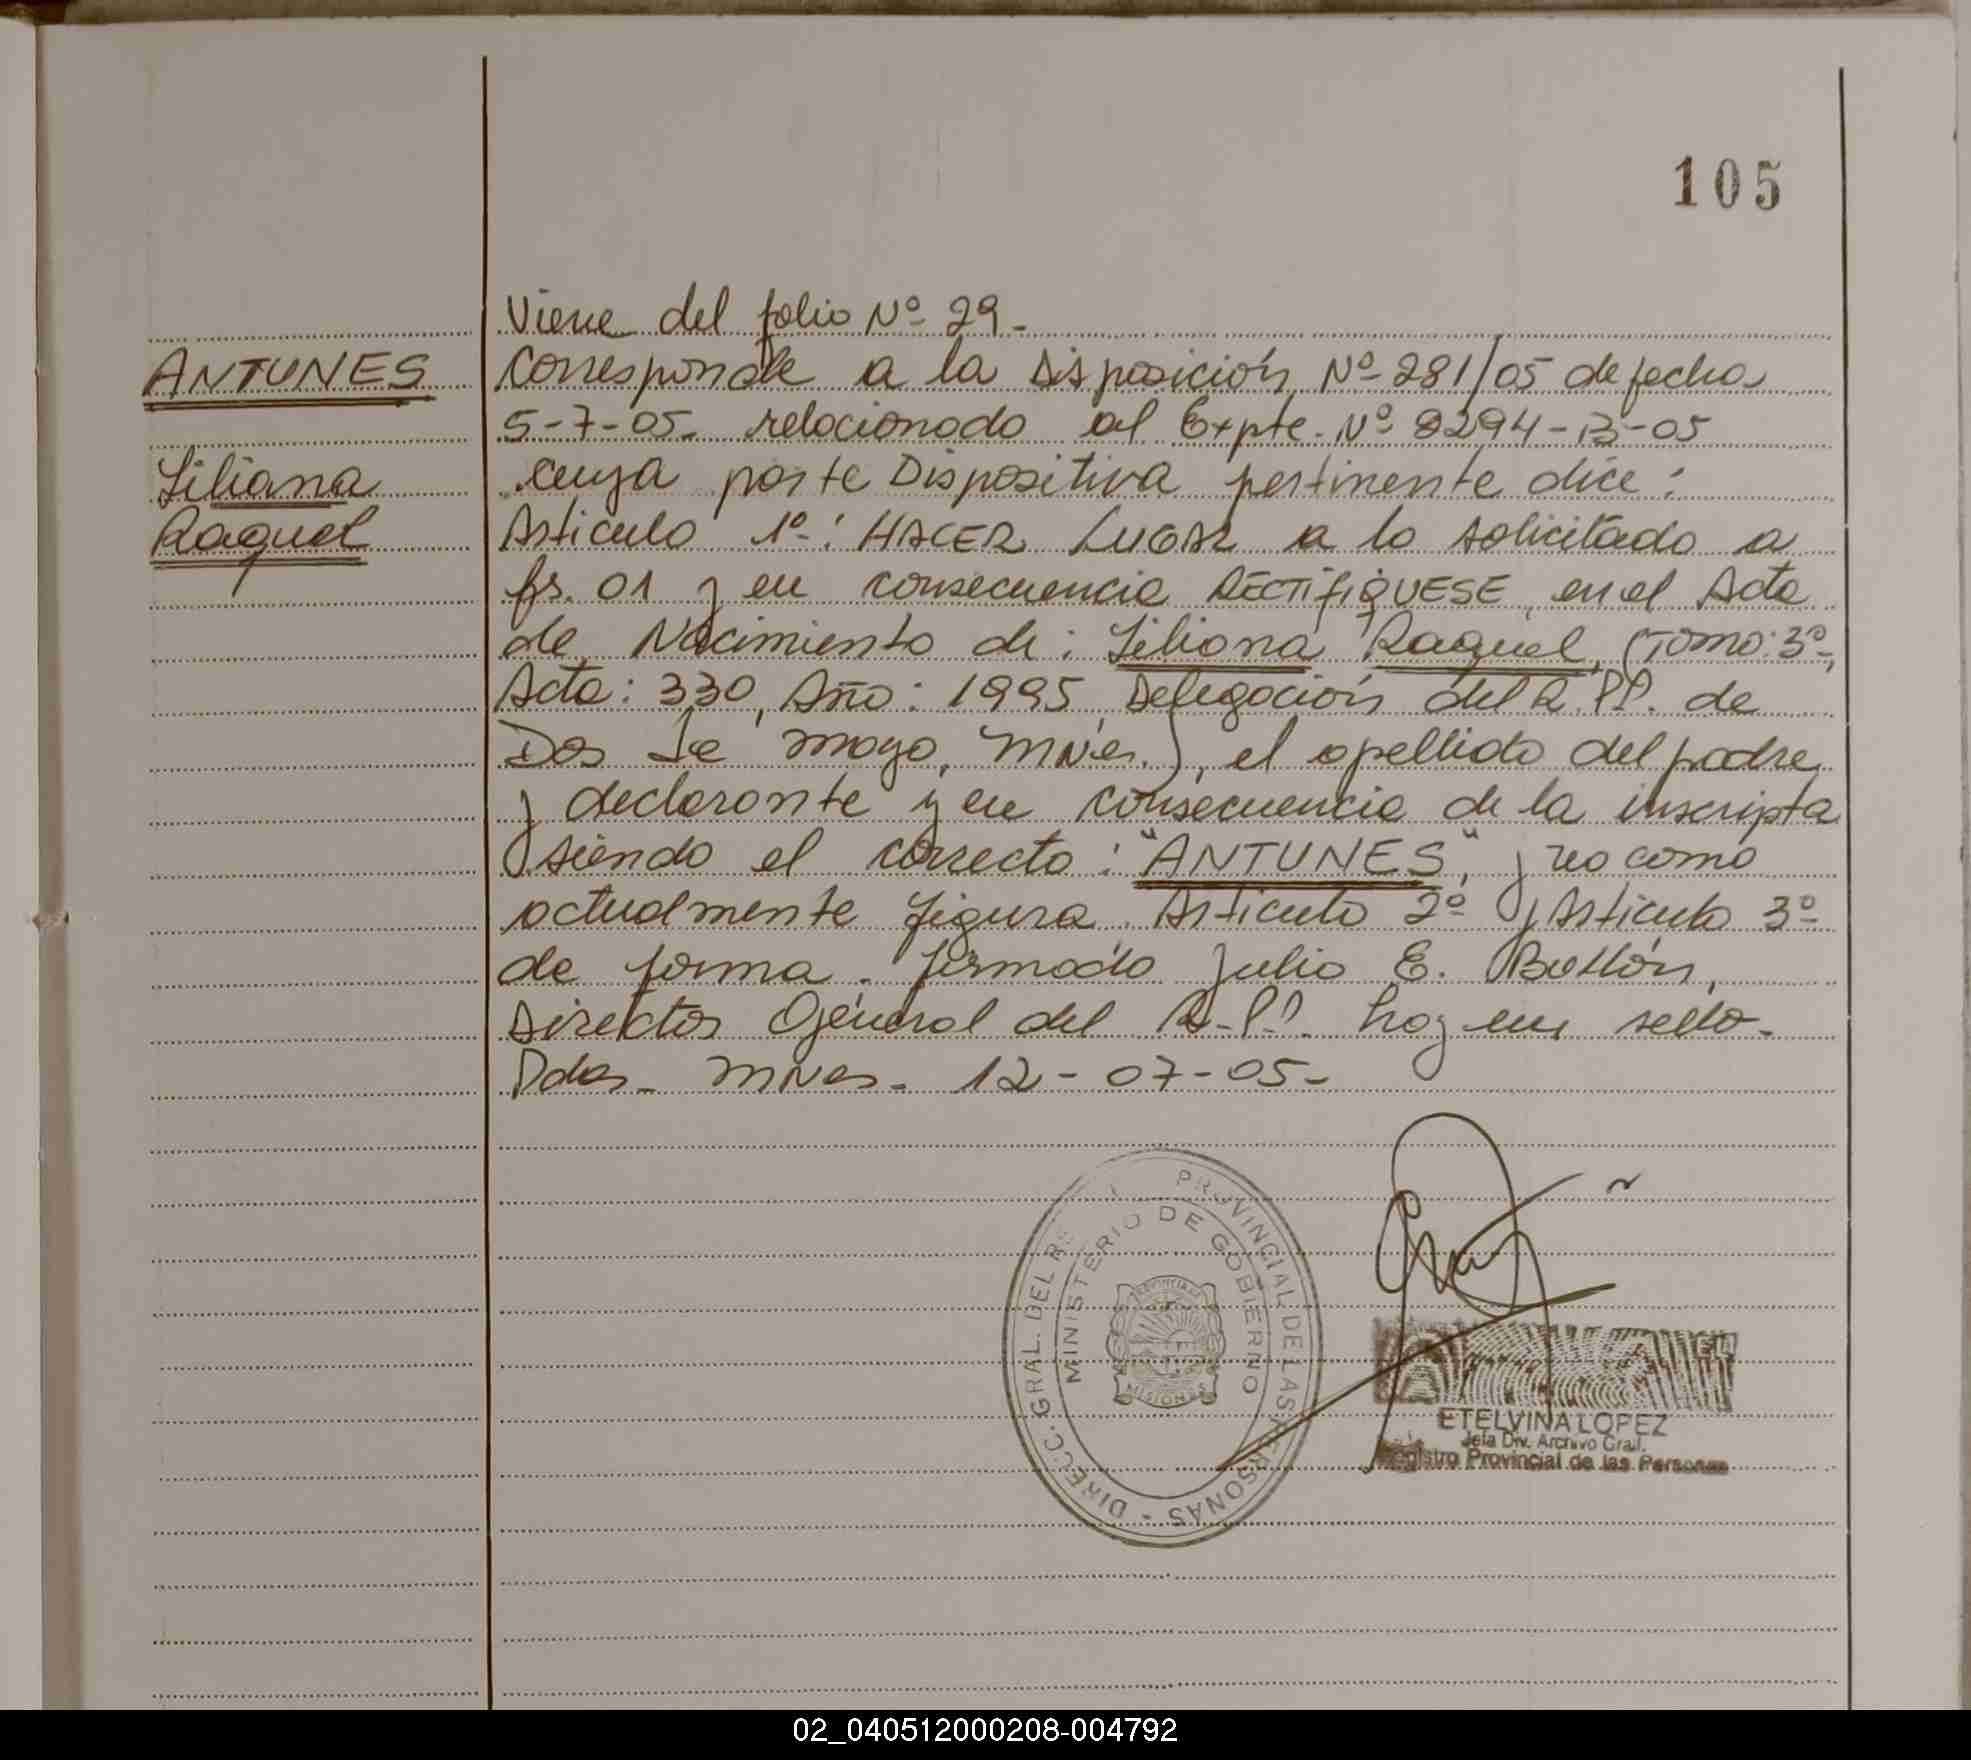 105
Viene del folio Nº 29-
ANTUNES
Corresponde a la Disposición Nº 281/05 de fecha
5-7-05- relacionado al Expte. Nº 8294-B-05
Liliana
cuya parte Dispositiva pertinente dice:
Raquel
Articulo 1º: HACER LUGAR a lo solicitado a
fs. 01 y en consecuencia RECTIFIQUESE, en el Acta
de Nacimiento de: Liliana Raquel, (Tomo: 3º,
Acta: 330, Año: 1995, Delegación del R.P.P. de
Dos de mayo, Mnes.), el apellido del padre
y declarante y en consecuencia de la inscripta
siendo el correcto: "ANTUNES", y no como
actualmente figura. Articulo 2º y Articulo 3º
de forma. firmado Julio E.
Director General del R.P.P. hay un sello-
Pdas- Mnes- 12-07-05-
DIRECC. GRAL. DEL PROVINCIAL DE LAS PERSONAS -
MINISTERIO DE GOBIERNO
MISIONES
ETELVINA LOPEZ
Jefa Div. Archivo Gral.
Registro Provincial de las Personas
02_040512000208-004792